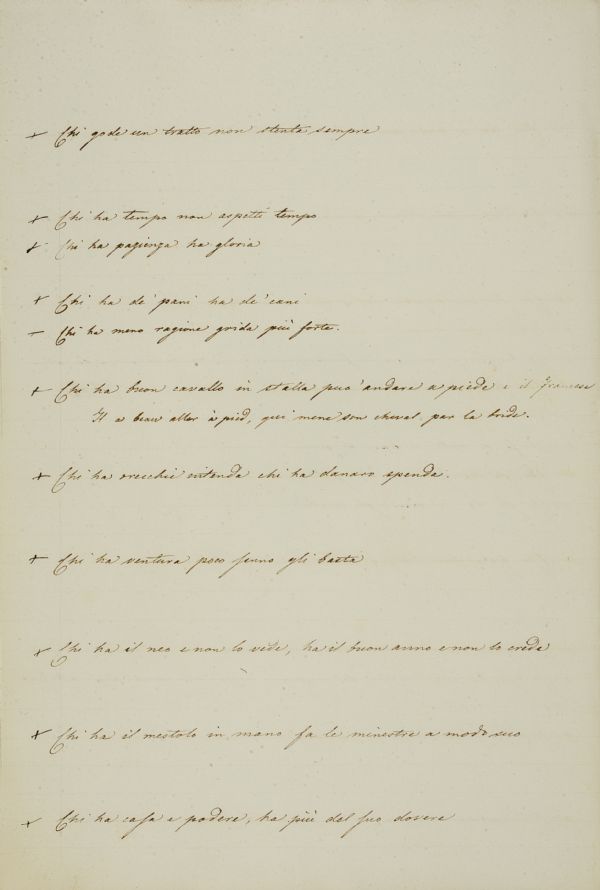 + Chi gode un tratto non stenta sempre
+ Chi ha tempo non aspetti tempo
+ Chi ha pazienza ha gloria
+ Chi ha de' pani ha de' cani
– Chi ha meno ragione grida più forte.
+ Chi ha buon cavallo in stalla puo' andare a piede e il francese
Il a beau aller à pied, qui mene son cheval par la bride.
+ Chi ha orecchie intenda chi ha danaro spenda.
+ Chi ha ventura poco senno gli basta
+ Chi ha il neo e non lo vede, ha il buon anno e non lo crede
+ Chi ha il mestolo in mano fa le minestre a modo suo
+ Chi ha casa e podere, ha più del suo dovere